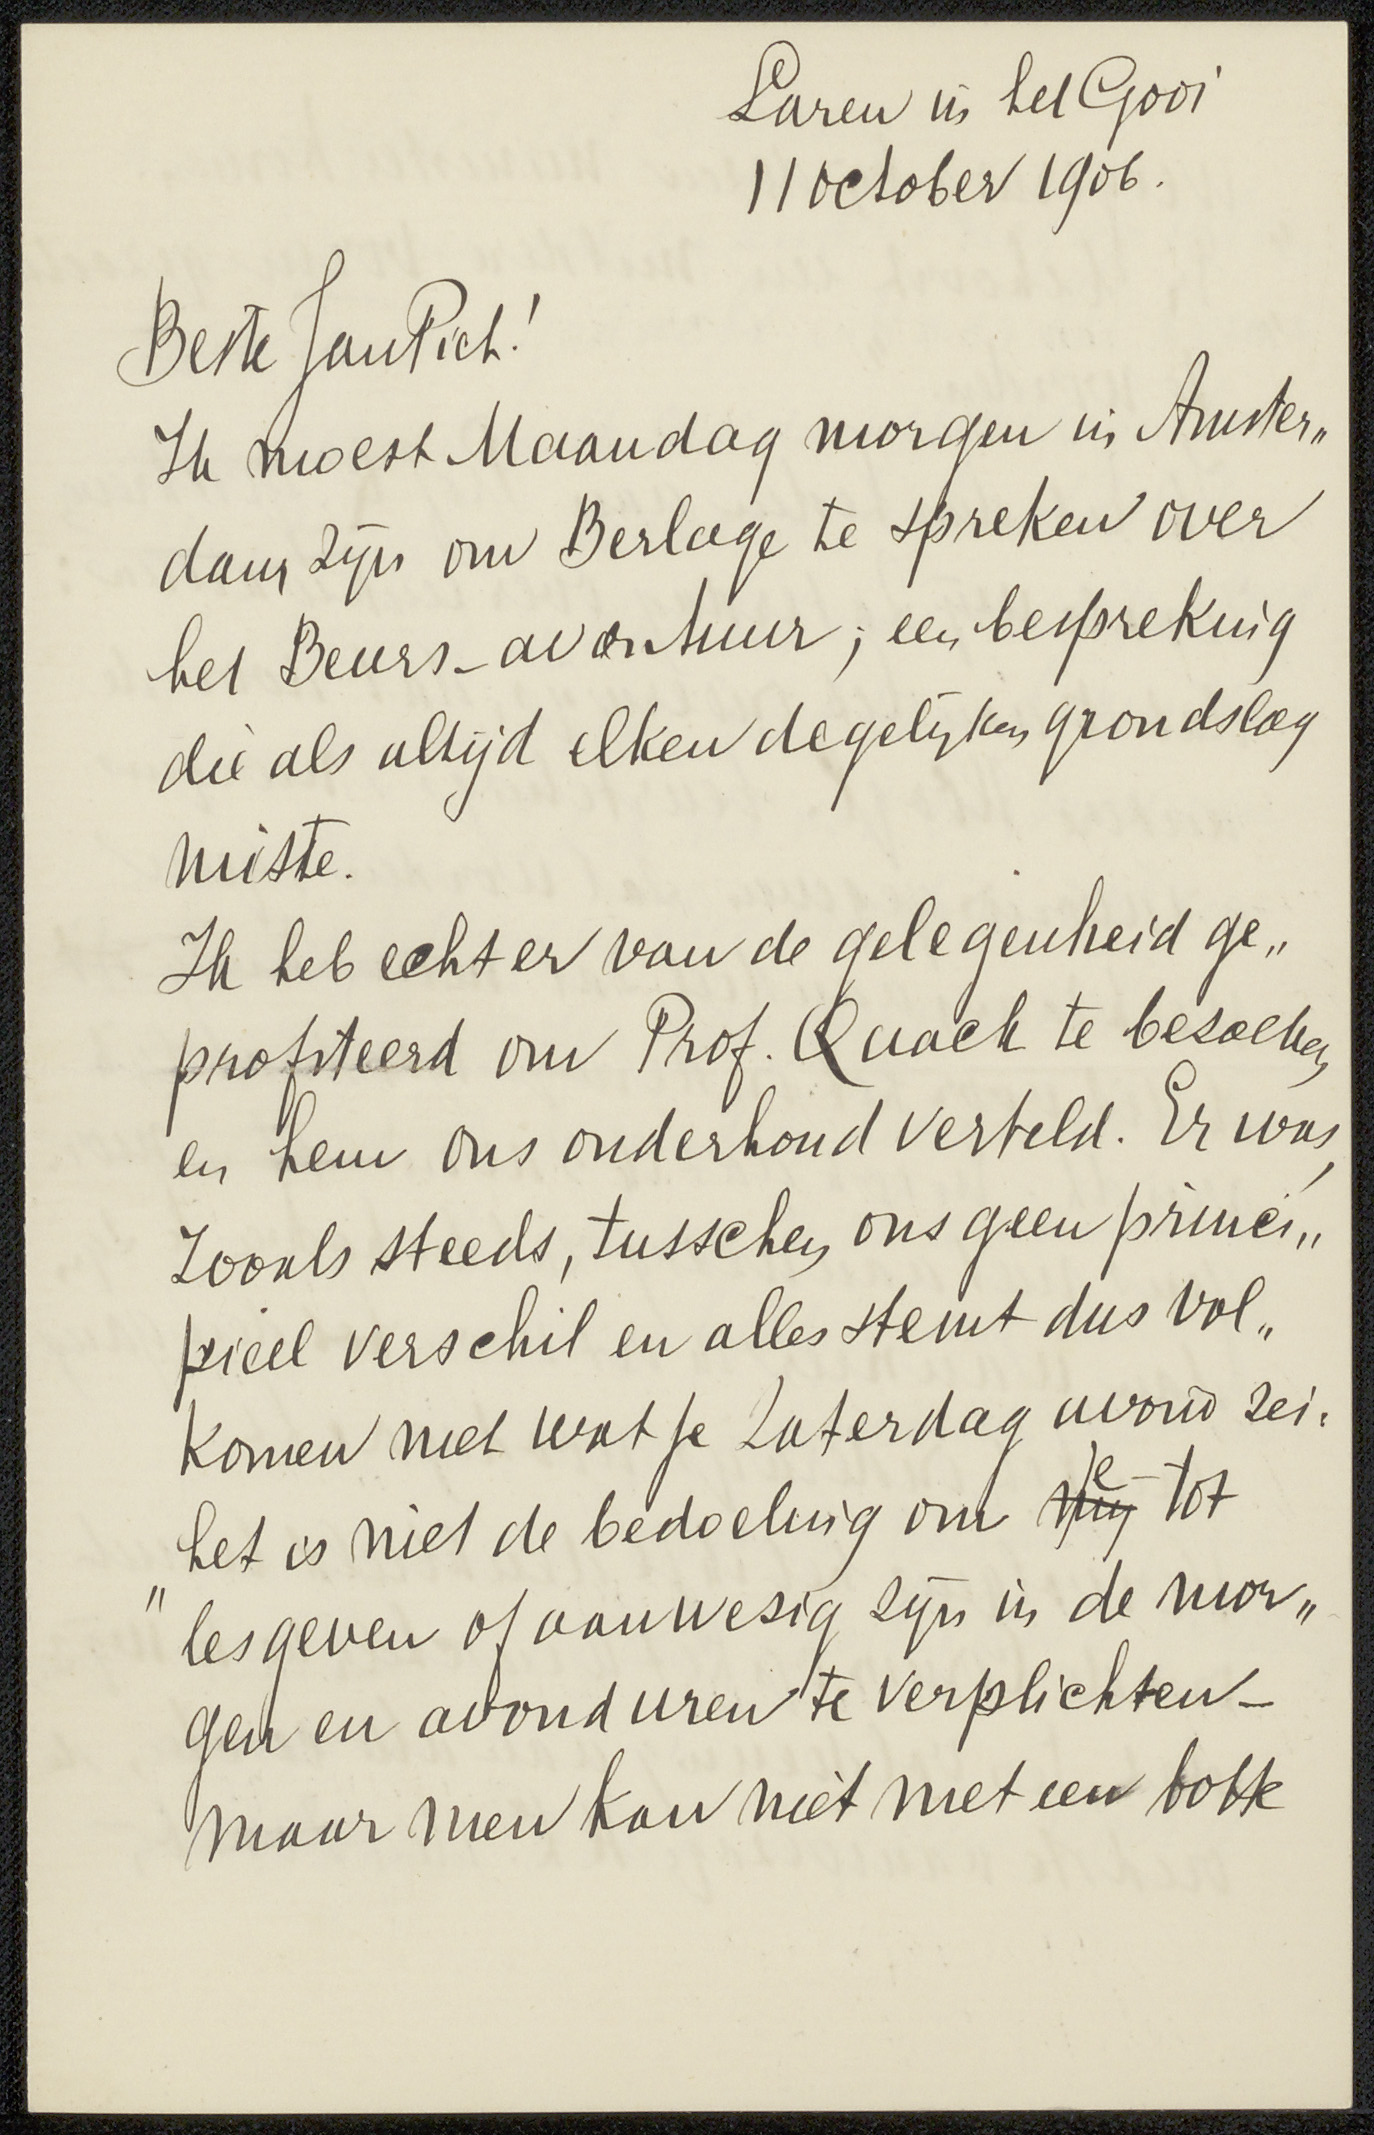 Laren in het Gooi
11 october 1906.
Beste Jan Pieck!
Ik moest Maandag morgen in Amster„
dam zijn om Berlage te spreken over
het Beurs-avontuur; een bespreking
die als altijd elken degelijken grondslag
miste.
Ik heb echter van de gelegenheid ge„
profiteerd om Prof. Quack te bezoeken
en hem ons onderhoud verteld. Er was,
zooals steeds, tusschen ons geen princi„
pieel verschil en alles stemt dus vol„
komen met wat je Zaterdag avond zei:
het is niet de bedoeling om je tot
" lesgeven of aanwezig zijn in de mor„
gen en avonduren te verplichten—
maar men kan niet met een botte